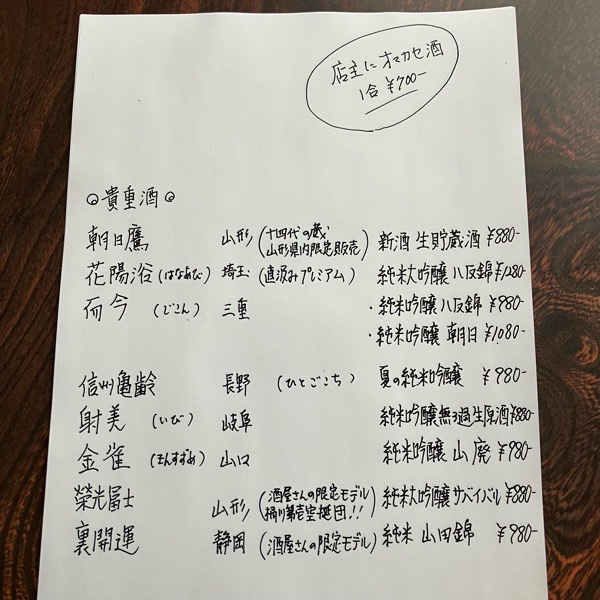 店主にオマカセ酒
1合 ¥700-
◎貴重酒◎
朝日鷹 山形 (十四代の蔵 山形県内限定販売) 新酒 生貯蔵酒 ¥880-
花陽浴 (はなあび) 埼玉 (直汲みプレミアム) 純米大吟醸 八反錦 ¥1280-
而今 (じこん) 三重 ・純米吟醸 八反錦 ¥980-
・純米吟醸 朝日 ¥1080-
信州亀齢 長野 (ひとごこち) 夏の純米吟醸 ¥980-
射美 (いび) 岐阜 純米吟醸無ろ過生原酒 ¥880-
金雀 (きんすずめ) 山口 純米吟醸 山廃 ¥980-
榮光冨士 山形 (酒屋さんの限定モデル 桶川第壱空挺団!!) 純米大吟醸 サバイバル ¥880-
裏開運 静岡 (酒屋さんの限定モデル) 純米 山田錦 ¥980-